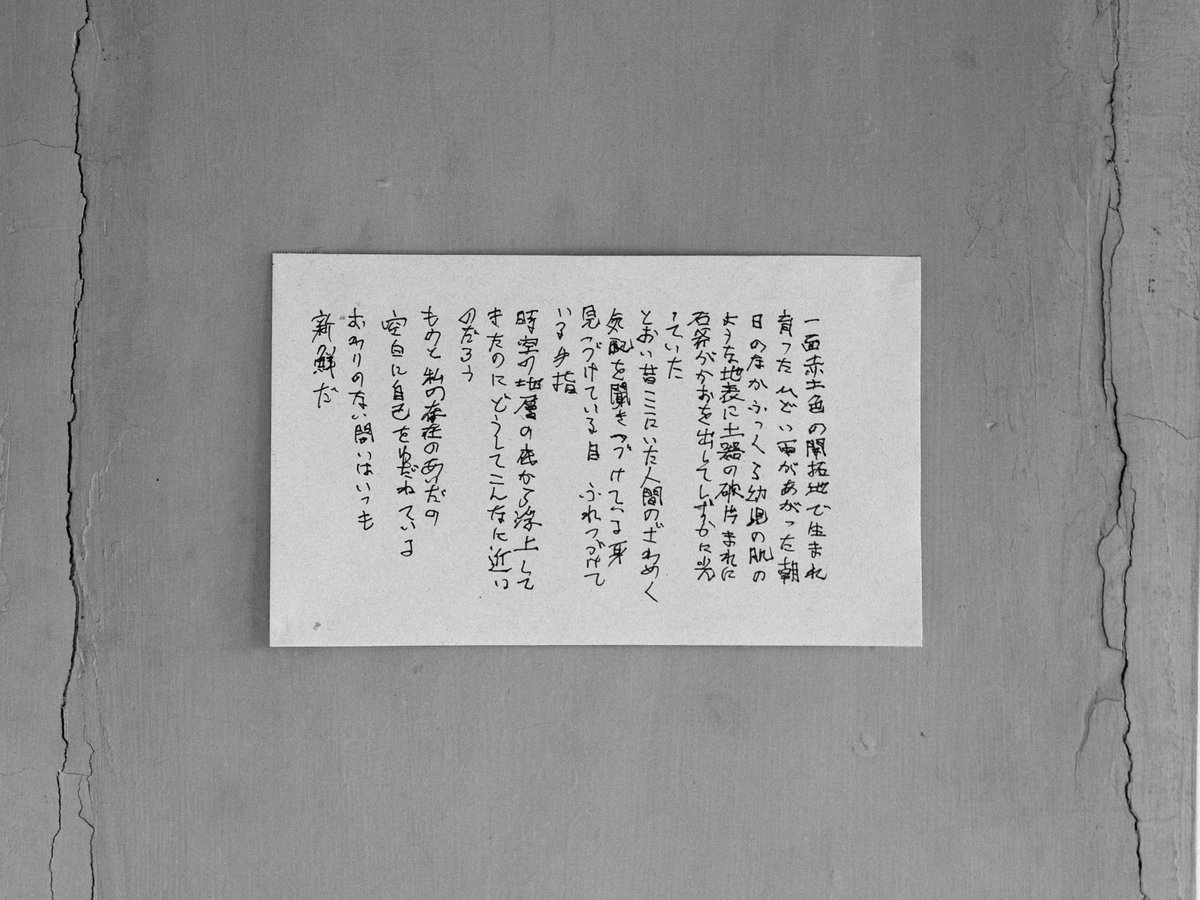 一面赤土色の開拓地で生まれ
育った ひどい雨があがった朝
日のなか ふっくる幼児の肌の
ような地表に土器の破片 まれに
石斧がかおを出してしずかに光
っていた
とおい昔ここにいた人間のざわめく
気配を聞きつづけている耳
見つづけている目 ふれつづけて
いる手指
時空の地層の底から浮上して
きたのに どうしてこんなに近い
のだろう
ものと私の存在のあいだの
空白に自己をゆだねている
おわりのない問いはいつも
新鮮だ